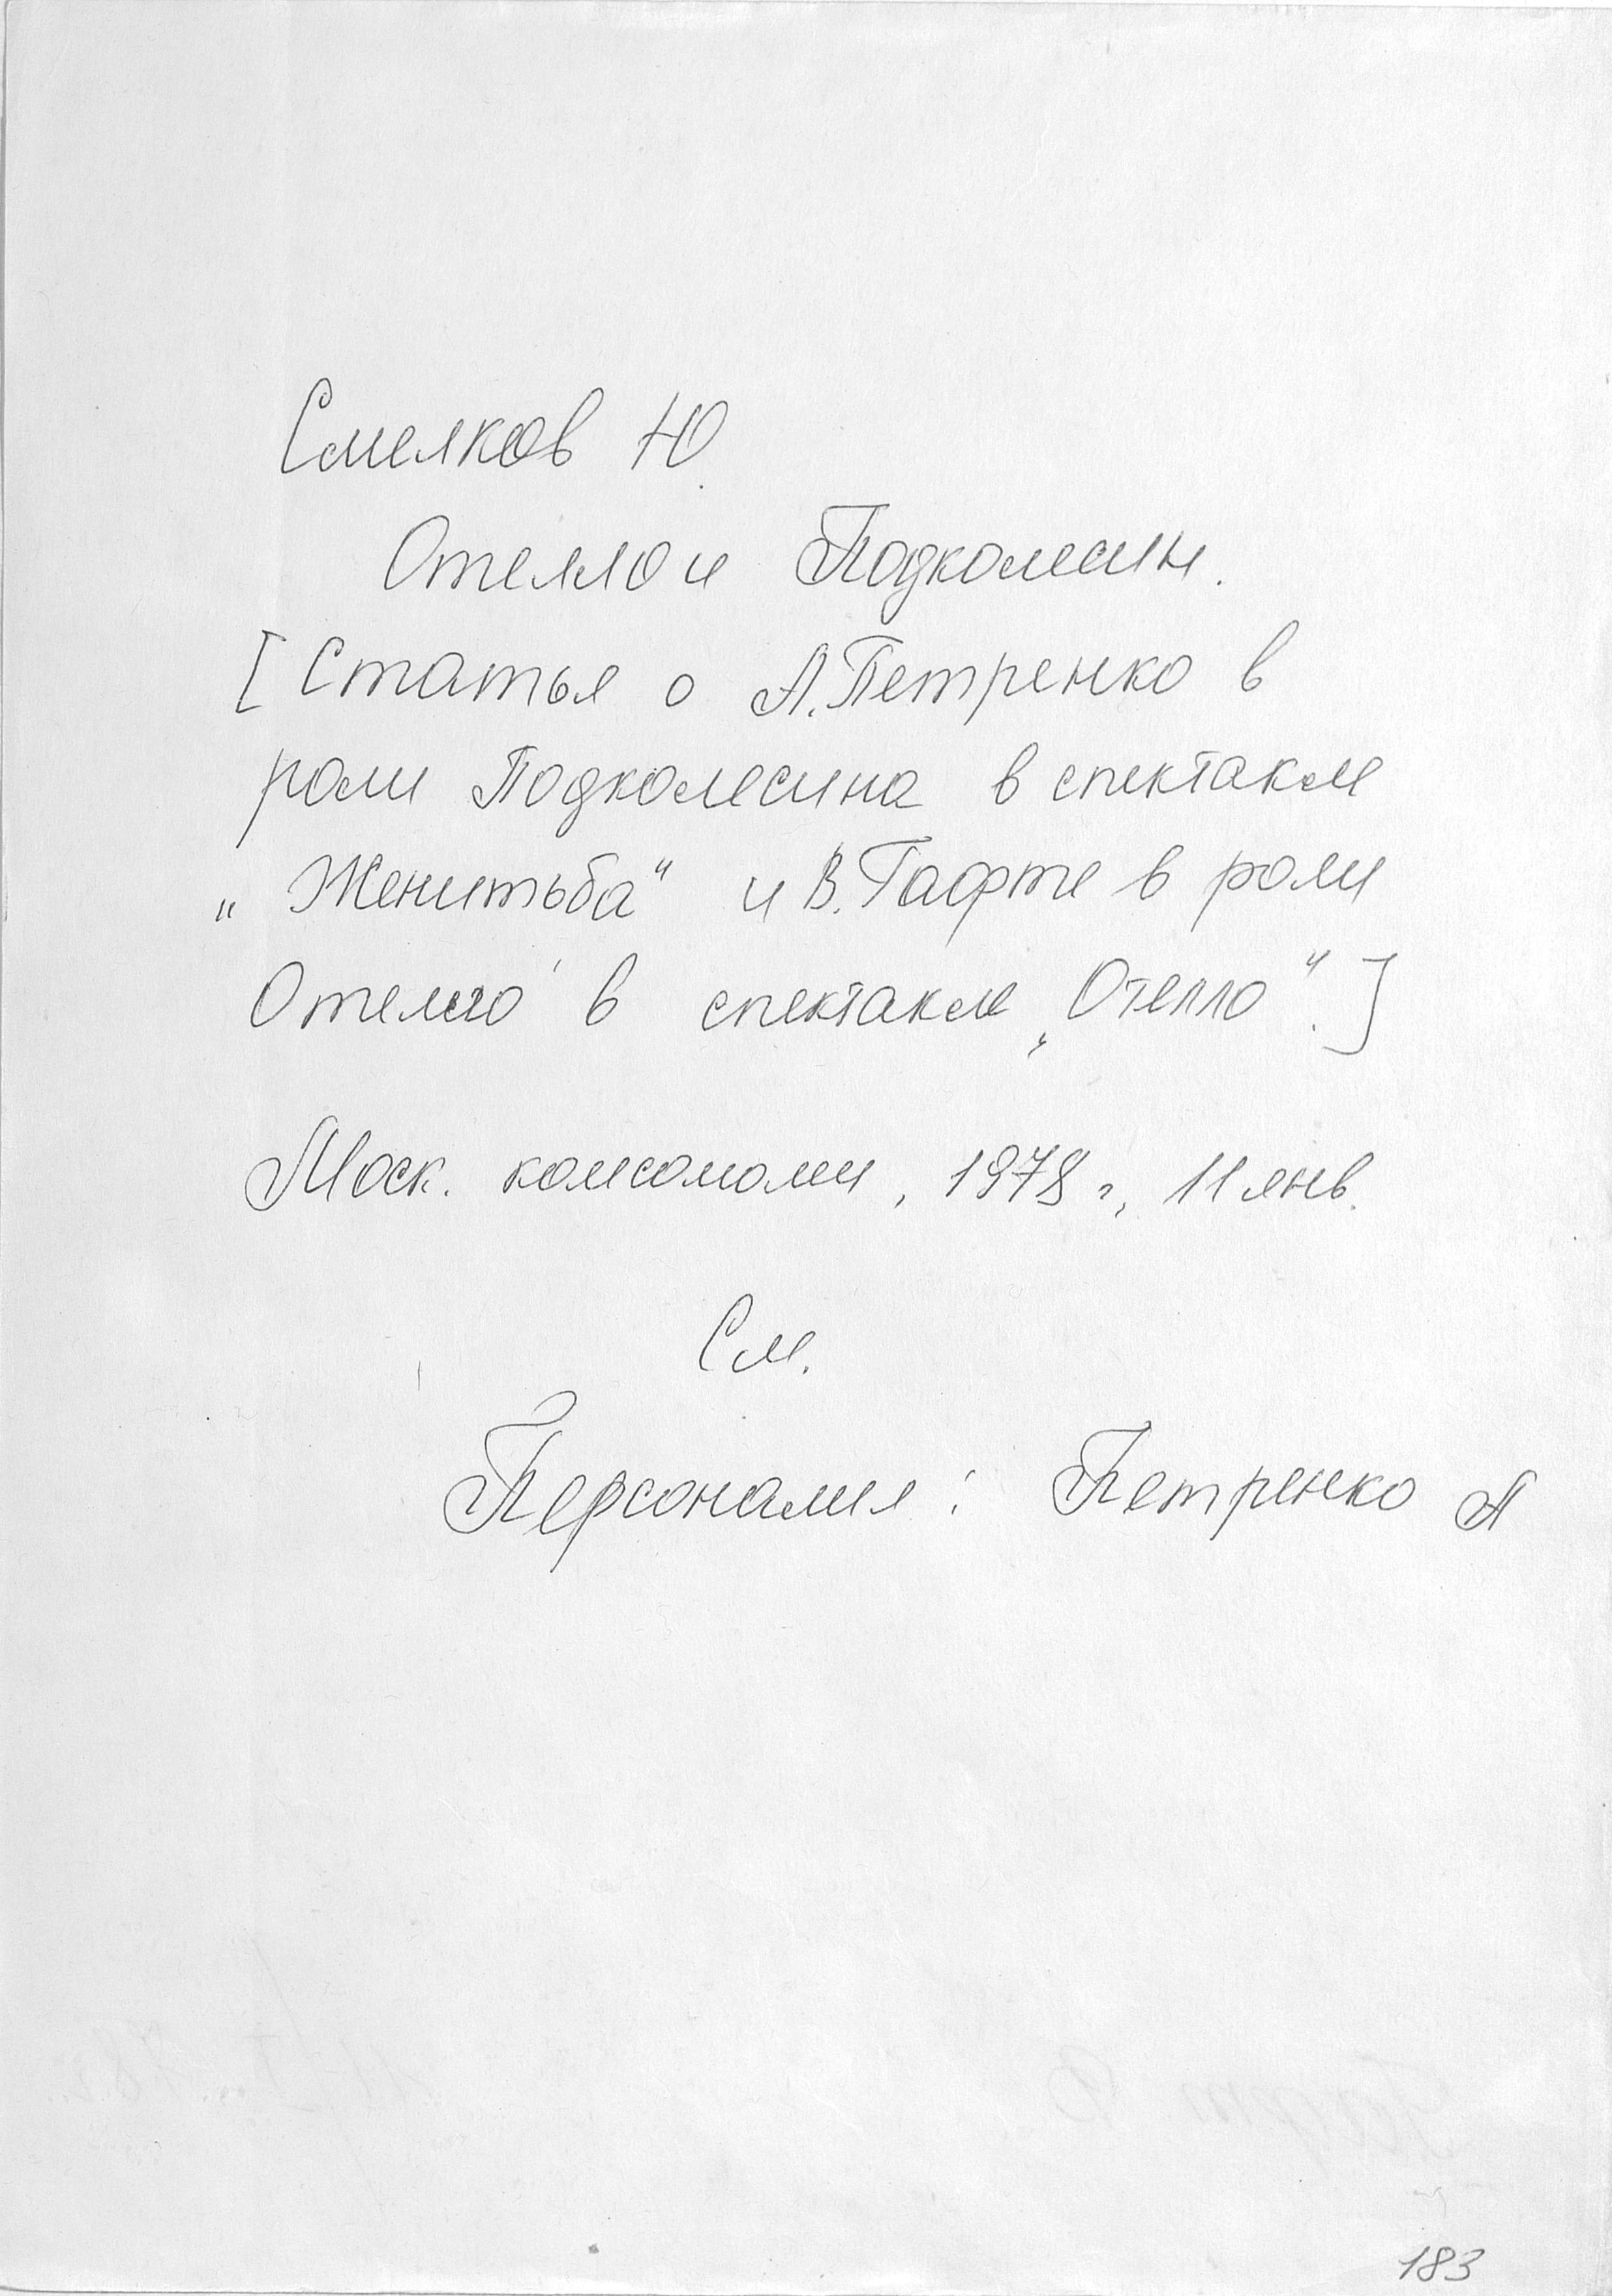 Смелков Ю.
Отелло и Подколесин.
[Статья о А. Петренко в
роли Подколесина в спектакле
„Женитьба“ и В. Гафте в роли
Отелло в спектакле „Отелло“.]
Моск. комсомолец, 1978 г., 11 янв.
См.
Персоналия: Петренко А
183